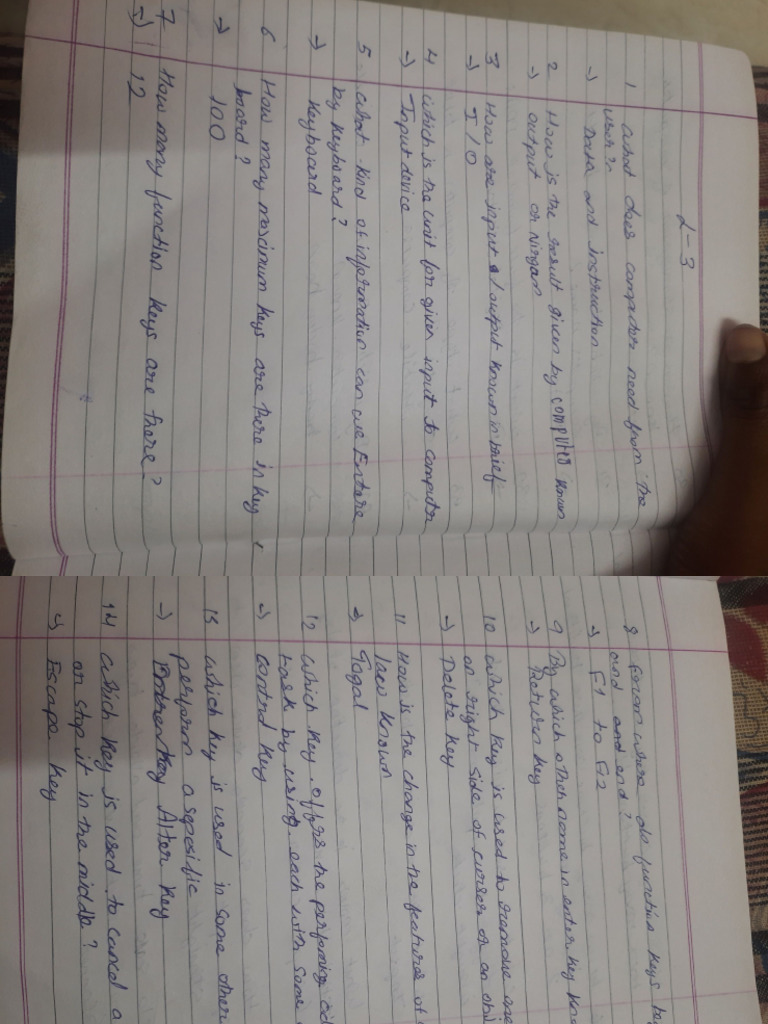 L-3
1 what does computer need from the
user?
→ Data and instruction.
2 How is the result given by computer known
→ output or Nirgam
3 How are input / output known in brief
→ I/O
4 which is the unit for given input to computer
→ Input device
5. what kind of information can we Entire
by keyboard?
→ Keyboard
6 How many maximum keys are there in key
board?
→ 100
7 How many function keys are there?
→ 12
8 form where do function keys
and and end?
→ F1 to F12
9 By which other name is enter key
→ Return key
10 which key is used to remove one
on right side of curser or on
→ Delete key
11 How is the change in the features of
key known
→ Togal
12 which key offers the performing
task by using each with some
→ control key
13 which key is used in some other
perform a speisific
→ Alter key
14 which key is used to cancel a
or stop it in the middle?
→ Escape key